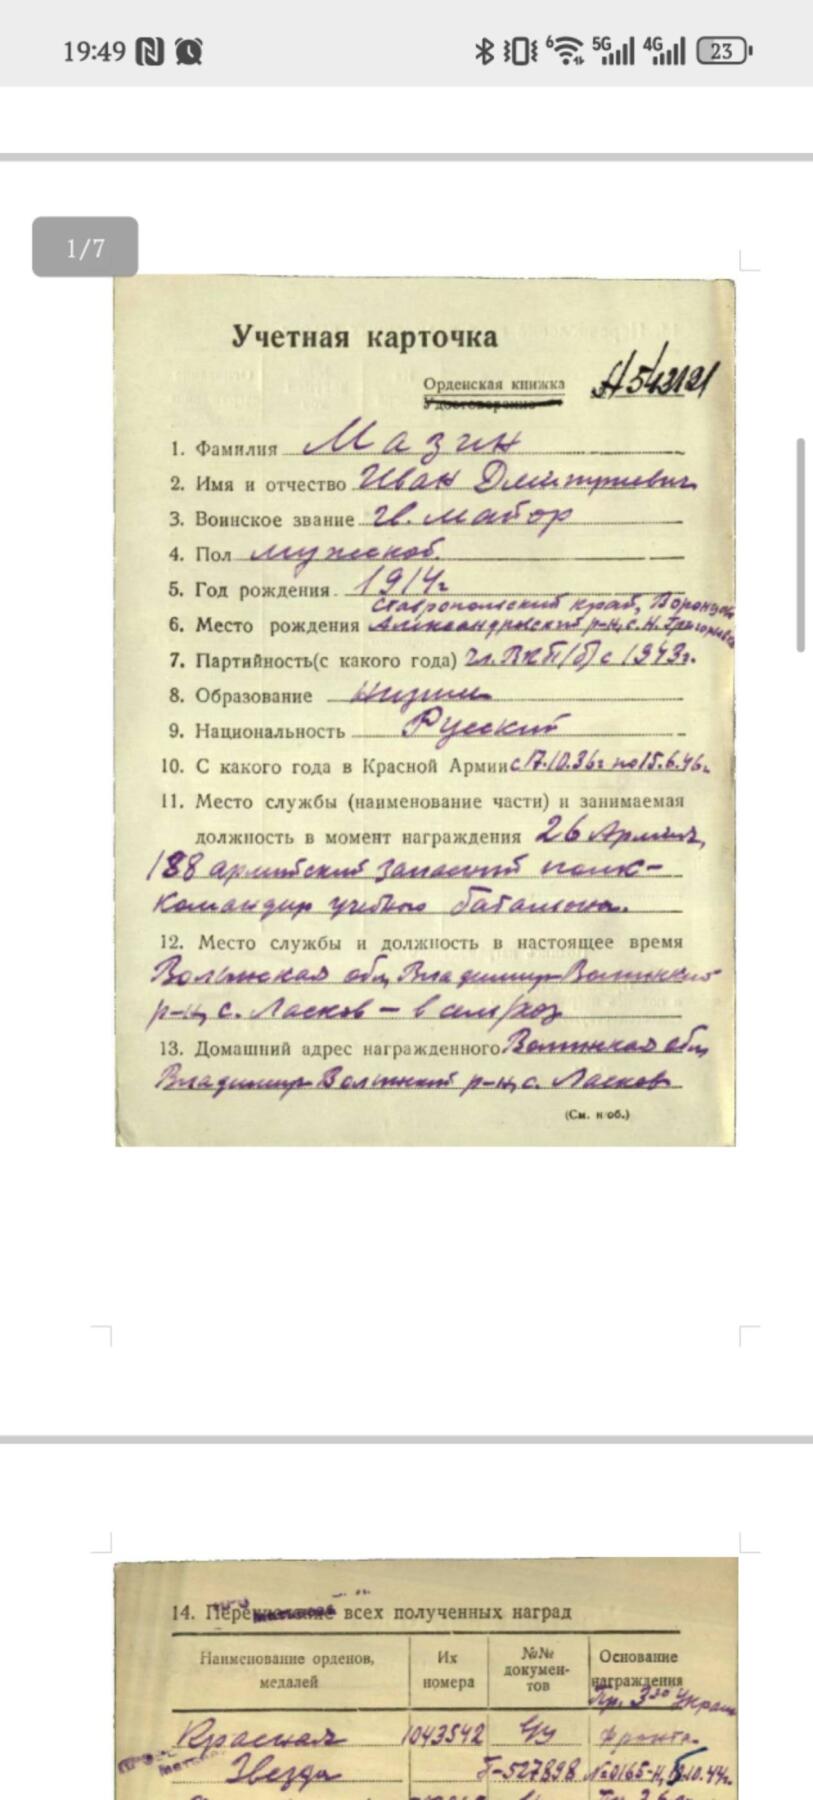 19:49
6 5G 4G 23
1/7
Учетная карточка
Орденская книжка
Удостоверение
1. Фамилия Мазин
2. Имя и отчество Иван Дмитриевич
3. Воинское звание гв. майор
4. Пол мужской
5. Год рождения 1914г
Ставропольский край, Воронцово
6. Место рождения Александровский р-н, с. Н. Григорьевка
7. Партийность(с какого года) чл. ВКП(б) с 1943г.
8. Образование низшее
9. Национальность Русский
10. С какого года в Красной Армии с 17.10.36г по 15.6.46г.
11. Место службы (наименование части) и занимаемая
должность в момент награждения 26 Армия,
188 армейский запасной полк-
командир учебного батальона.
12. Место службы и должность в настоящее время
Волынская обл, Владимир-Волынский
р-н, с. Ласков - в сел/хоз
13. Домашний адрес награжденного Волынская обл,
Владимир Волынский р-н, с. Ласков
(См. н об.)
14. всех полученных наград
Наименование орденов, медалей
Их номера
№№ докумен-тов
Основание награждения
Пр. 3го Украин
Красная 1043542 фронта.
Звезда Г-527898 №0165-н, 10.44г.